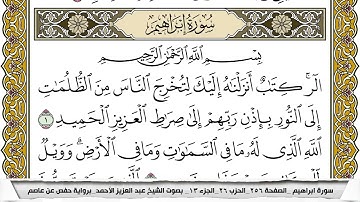 سُورَةُ إِبْرَاهِيمَ
بِسْمِ ٱللَّهِ ٱلرَّحْمَٰنِ ٱلرَّحِيمِ
الٓر ۚ كِتَٰبٌ أَنزَلْنَٰهُ إِلَيْكَ لِتُخْرِجَ ٱلنَّاسَ مِنَ ٱلظُّلُمَٰتِ
إِلَى ٱلنُّورِ بِإِذْنِ رَبِّهِمْ إِلَىٰ صِرَٰطِ ٱلْعَزِيزِ ٱلْحَمِيدِ ١
ٱللَّهِ ٱلَّذِى لَهُۥ مَا فِى ٱلسَّمَٰوَٰتِ وَمَا فِى ٱلْأَرْضِ ۗ وَوَيْلٌ
سورة ابراهيم _الصفحة ٢٥٦_ الحزب ٢٦_ الجزء ١٣_ بصوت الشيخ عبد العزيز الأحمد_ برواية حفص عن عاصم